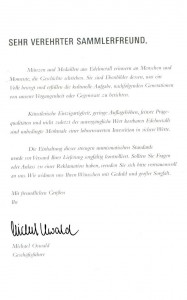 SEHR VEREHRTER SAMMLERFREUND,
Münzen und Medaillen aus Edelmetall erinnern an Menschen und
Momente, die Geschichte schrieben. Sie sind
Volk bewegt und erfüllen die kulturelle Aufgabe, nachfolgenden Generationen
von unserer Vergangenheit oder Gegenwart zu berichten.
Künstlerische Einzigartigkeit, geringe Auflagezahlen, feinste Präge-
qualitäten und nicht zuletzt der unvergängliche Wert kostbaren Edelmetalls
sind unbedingte Merkmale einer lohnenswerten Investition in sichere Werte.
Die Einhaltung dieser strengen numismatischen Standards
wurde vor Versand Ihrer Lieferung sorgfältig kontrolliert. Sollten Sie Fragen
oder Anlass zu einer Reklamation haben, wenden Sie sich bitte vertrauensvoll
an uns. Wir widmen uns Ihren Wünschen mit Geduld und großer Sorgfalt.
Mit freundlichen Grüßen
Ihr
Michael Oswald
Michael Oswald
Geschäftsführer